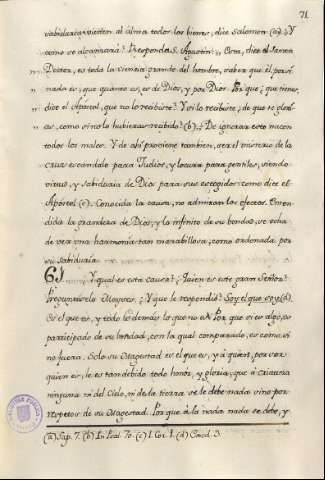 71
sabiduria vienten al alma todos los bienes, dice Salomon (a). ¿Y
como se alcanzarà? Responde S. Agustin: Esta, dice el Santo
Doctor, es toda la ciencia grande del hombre, saber que èl por sì
nada es; que quanto es, es de Dios, y por Dios. Por que ¿que tienes,
dice el Apostol, que no lo recibiste? Y si lo recibiste, ¿de que te glorias,
as, como si no lo hubieras recibido? (b). De ignorar esto nacen
todos los males. Y de ahì proviene tambien, ser el misterio de la
cruz escandalo para Judios, y locura para gentiles, siendo
virtud, y sabiduria de Dios para sus escogidos: como dice el
Apostol (c). Conocida la causa, no admiran los efectos. Entendida
la grandeza de Dios, y lo infinito de su bondad, se echa
de ver una harmonia tan marabillosa, como ordenada por
su Sabiduria.
61 Y qual es esta causa? ¿Quien es este gran Señor?
Preguntaselo Moyses, ¿Y que le respondiò? Soy el que soy (d).
Es el que es, y todo lo demàs lo que no es. Por que si es algo, es
participado de su bondad, con la qual comparado, es como si
no fuera. Solo su Magestad es el que es, y à quien, por ser
quien es, le es tan debido todo honor, y gloria, que à criatura
ninguna ni del Cielo, ni de la tierra se le debe nada sino por
respetos de su Magestad. Por que à la nada nada se debe, y
(a) Sap. 7. (b) In Psal. 70. (c) I. Cor. I. (d) Exod. 3.